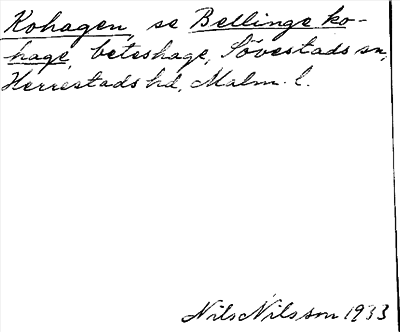 Kohagen, se Bellinge ko-
hage, beteshage, Sövestads sn,
Herrestads hd, Malm. l.
Nils Nilsson 1933